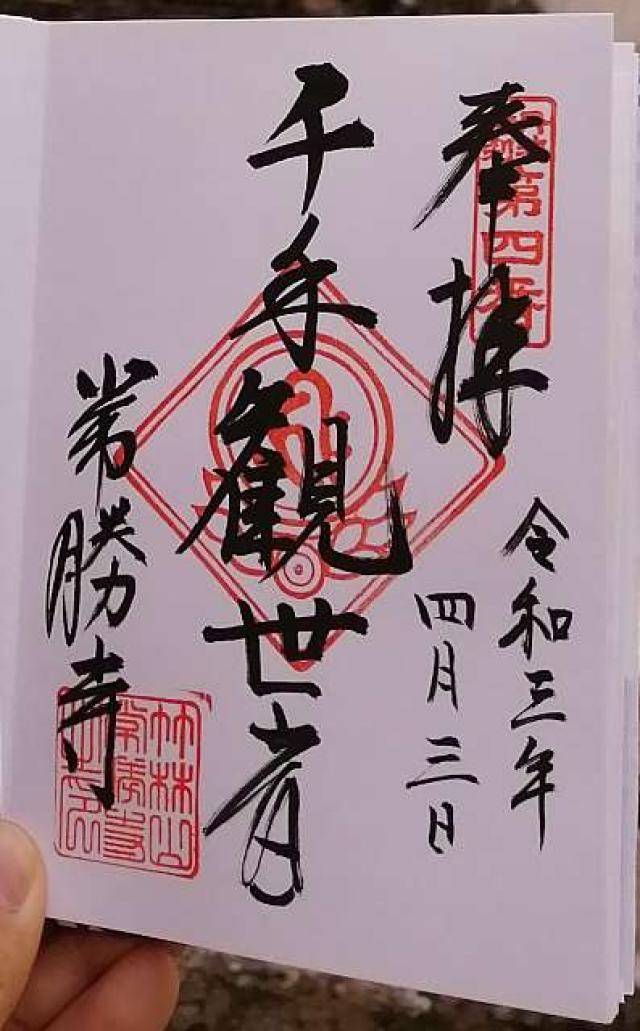 奉拝
第四番
令和三年
四月三日
千手観世音
常勝寺
竹林山
常勝寺